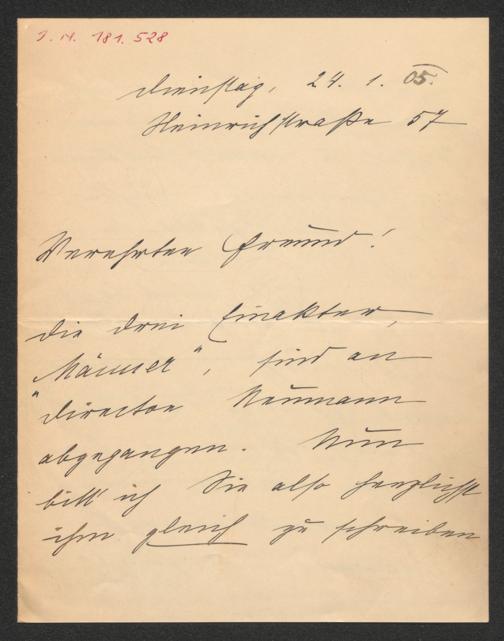 J. N. 181.528
Dienstag, 24. 1. 05.
Heinrichstraße 57
Verehrter Freund!
die drei Einakter,
„Männer", sind an
Director Neumann
abgegangen. Nun
bitt' ich Sie also herzlichst
ihm gleich zu schreiben